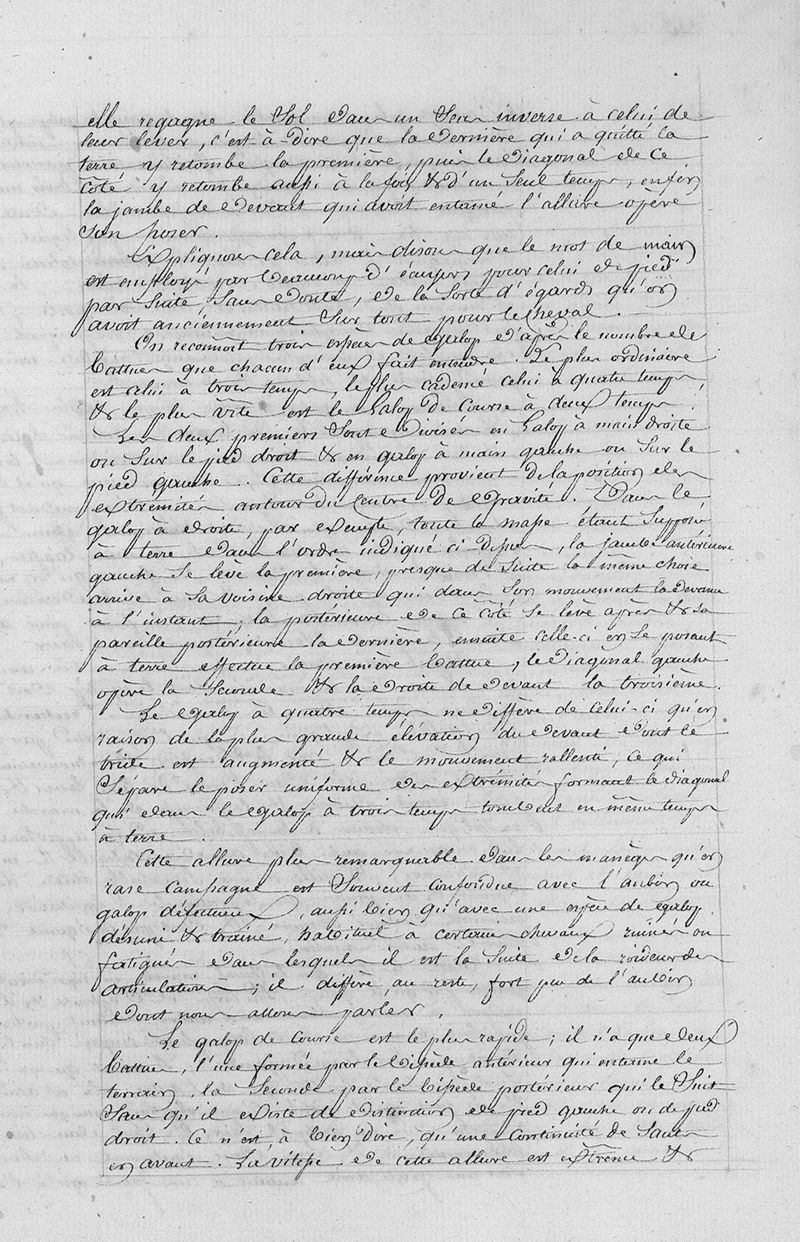 elle regagne le Sol dans un Sens inverse à celui de
leur lever, c'est à-dire que la dernière qui a quitté la
terre y retombe la première, puis le diagonal de ce
côté y retombe aussi à la fois & d'un seul temps, enfin
la jambe de devant qui avoit entamé l'allure opère
son poser.
Expliquons cela, mais disons que le mot de main
est employé par beaucoup d'écuyers pour celui de pied
par suite sans doute, de la sorte d'égards qu'on
avoit anciennement sur tout pour le cheval.
On reconnoit trois espèces de galop d'après le nombre de
battues que chacun d'eux fait entendre. Le plus ordinaire
est celui à trois temps, le plus cadencé celui à quatre temps
& le plus vite est le Galop de Course à deux temps.
Les deux premiers sont divisés en Galop à main droite
ou sur le pied droit & en galop à main gauche ou sur le
pied gauche. Cette différence provient de la position des
extrémités autour du Centre de Gravité. Dans le
galop à droite, par exemple, toute la masse étant supposée
à terre dans l'ordre indiqué ci-dessus, la jambe antérieure
gauche se lève la première, presque de suite la même chose
arrive à sa voisine droite qui dans son mouvement la devance
à l'instant; la postérieure de ce côté se lève après & sa
pareille postérieure la dernière, ensuite celle-ci en se posant
à terre effectue la première battue, le diagonal gauche
opère la seconde & la droite de devant la troisième.
Le galop à quatre temps ne diffère de celui-ci qu'en
raison de la plus grande élévation du devant dont le
tride est augmenté & le mouvement rallenti, ce qui
sépare le poser uniforme des extrémités formant le diagonal
qui dans le galop à trois temps tombent en même temps
à terre.
Cette allure plus remarquable dans les manèges qu'en
rase campagne est souvent confondue avec l'aubin ou
galop défectueux, aussi bien qu'avec une espèce de galop
désuni & trainé, habituel à certains chevaux ruinés ou
fatigués dans lesquels il est la suite de la roideur des
articulations; il diffère, au reste, fort peu de l'aubin
dont nous allons parler.
Le galop de Course est le plus rapide; il n'a que deux
battues, l'une formée par le bipède antérieur qui entame le
terrain, la seconde par le bipède postérieur qui le suit
sans qu'il existe de distinction de pied gauche ou de pied
droit. Ce n'est, à bien dire, qu'une continuité de sauts
en avant. La vitesse de cette allure est extrême &